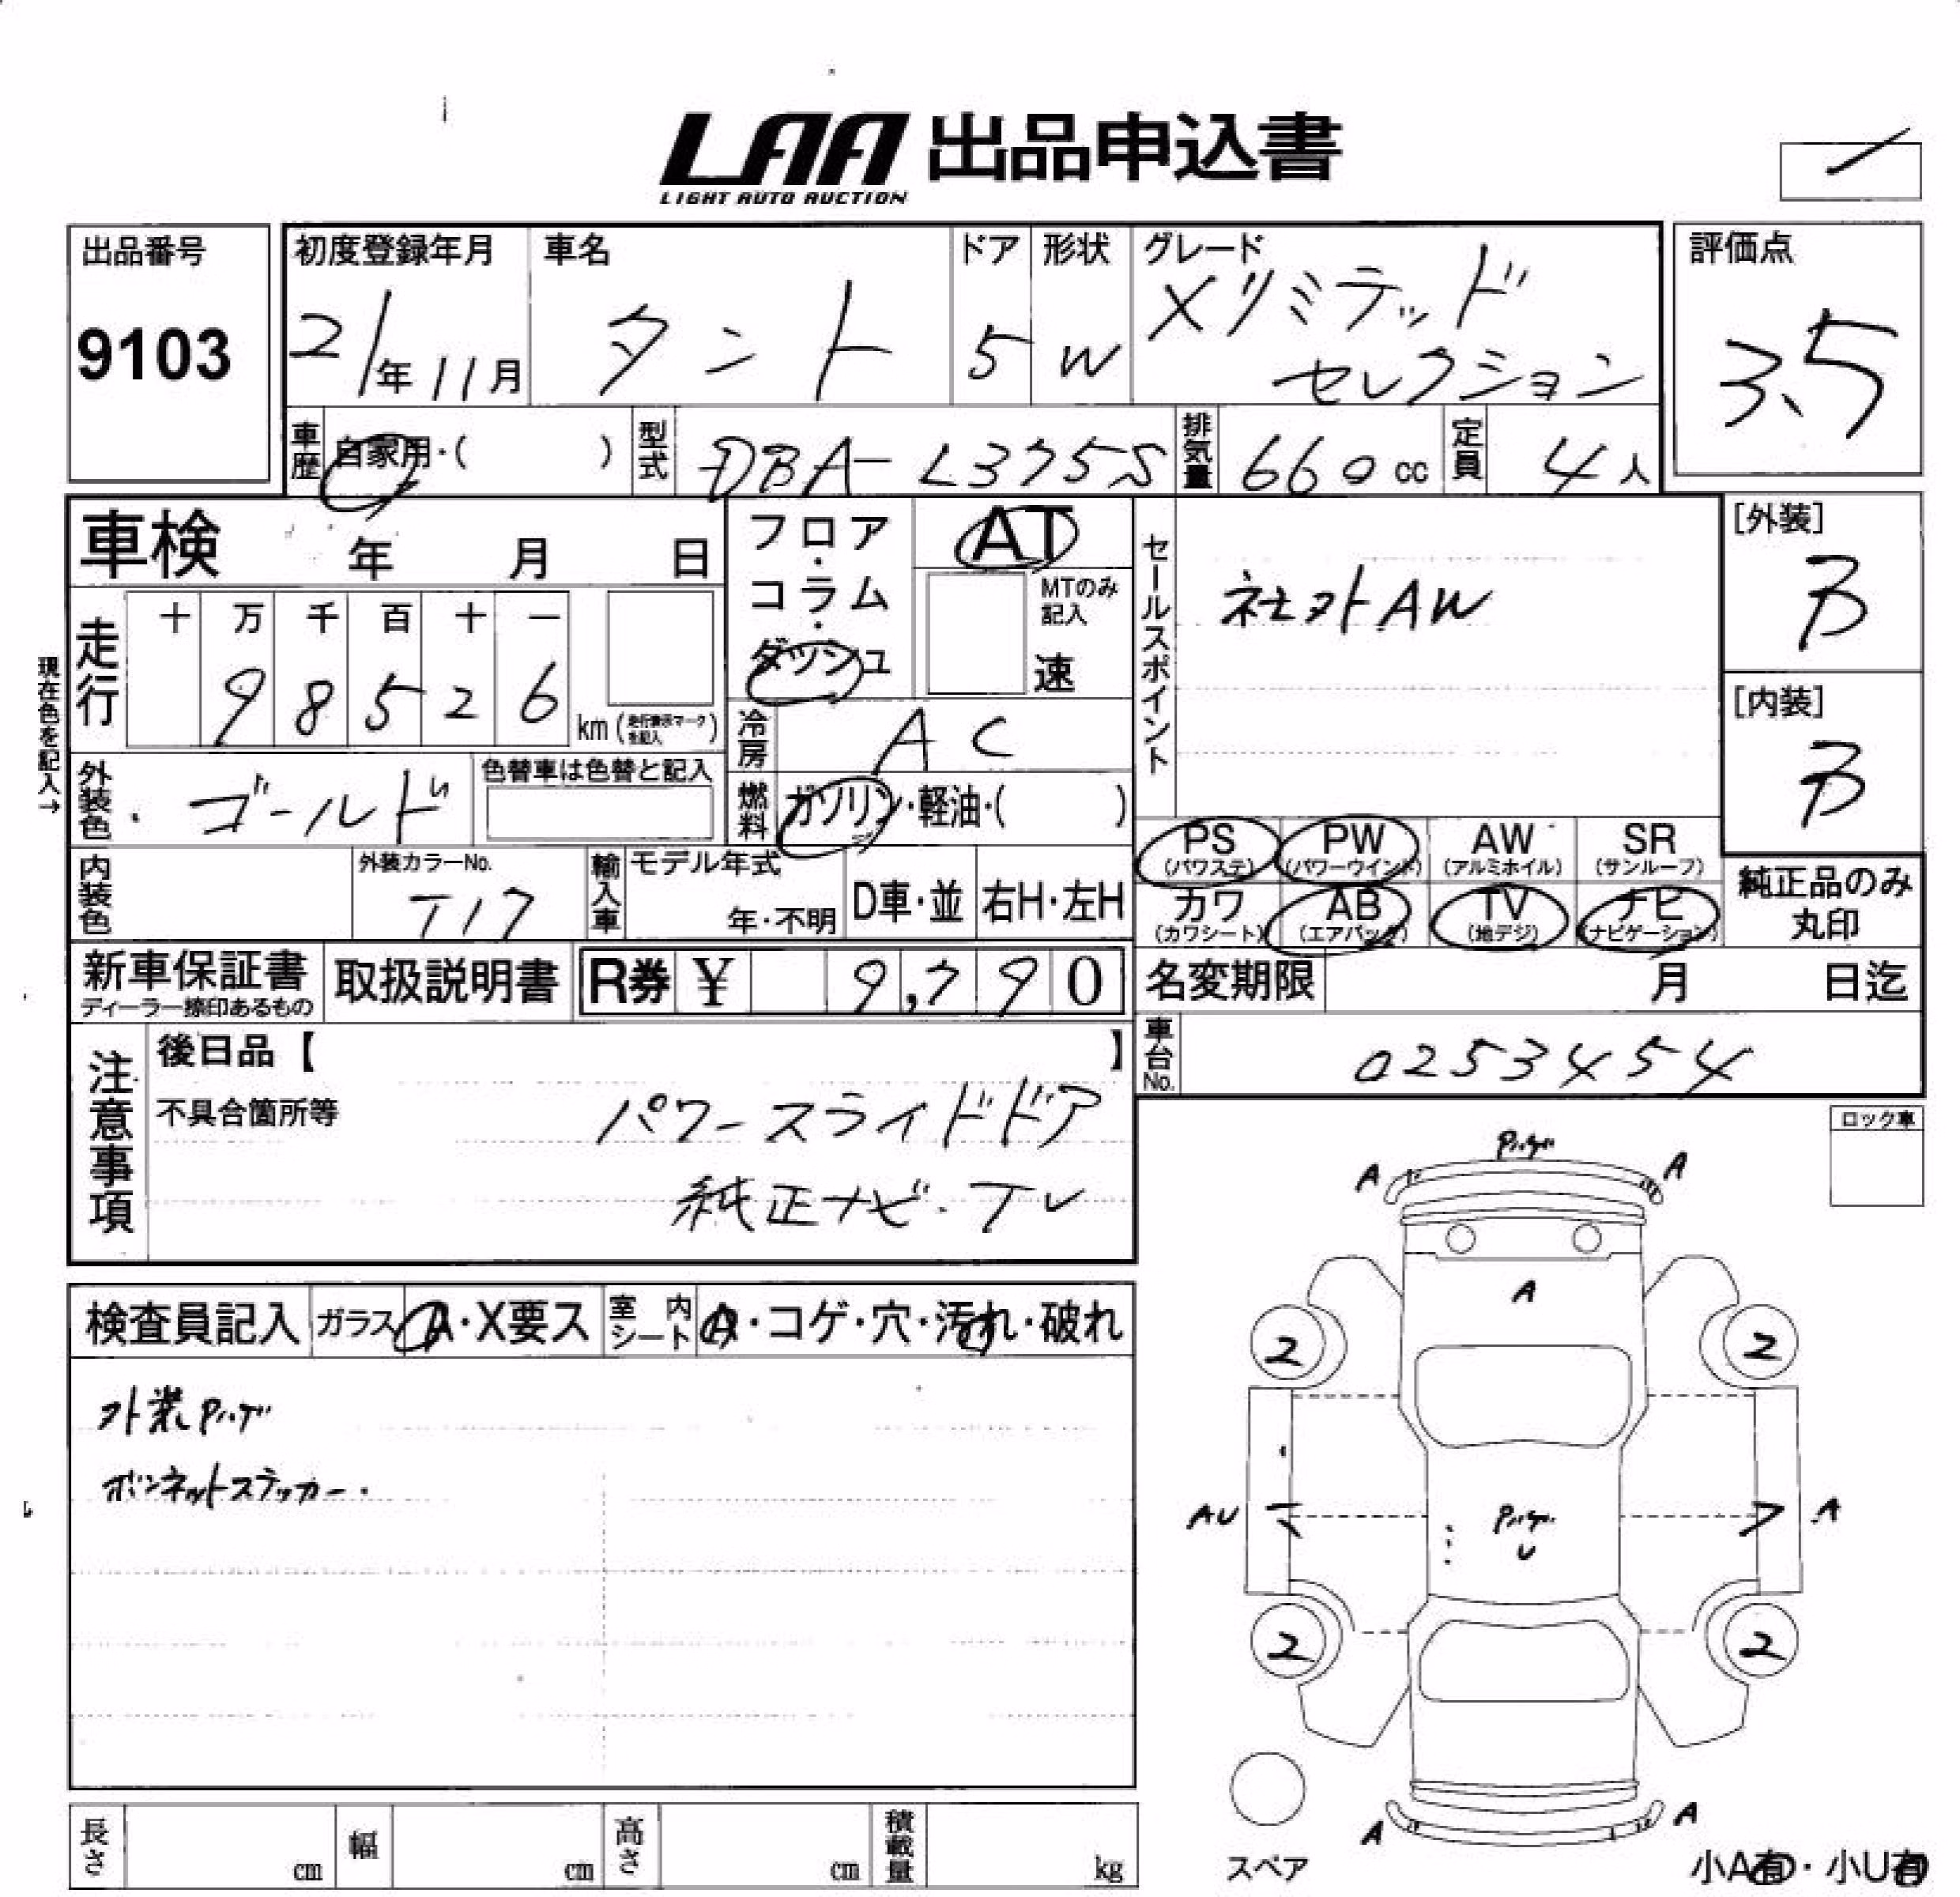 LAA 出品申込書
LIGHT AUTO AUCTION
出品番号
9103
初度登録年月
21年11月
車名
タント
ドア
5
形状
W
グレード
Xリミテッド
セレクション
評価点
3.5
車歴
自家用・( )
型式
DBA-L375S
排気量
660cc
定員
4人
車検 年 月 日
フロア・コラム・ダッシュ
AT
MTのみ記入
速
セールスポイント
社外AW
[外装]
B
[内装]
B
現在色を記入→
走行
十 万 千 百 十 一
9 8 5 2 6 km (走行表示マークを記入)
冷房
AC
外装色
ゴールド
色替車は色替と記入
燃料
ガソリン・軽油・( )
内装色
外装カラーNo.
T17
輸入車
モデル年式
年・不明
D車・並
右H・左H
PS (パワステ)
PW (パワーウインド)
AW (アルミホイル)
SR (サンルーフ)
カワ (カワシート)
AB (エアバック)
TV (地デジ)
ナビ (ナビゲーション)
純正品のみ
丸印
新車保証書
ディーラー捺印あるもの
取扱説明書
R券 ¥ 9,790
名変期限 月 日迄
車台No.
0253454
注意事項
後日品【 】
不具合箇所等
パワースライドドア
純正ナビ・TV
ロック車
検査員記入
ガラス
A・X要ス
室内シート
A・コゲ・穴・汚れ・破れ
外装
ボンネットステッカー.
A
A
A
2
2
AU
A
U
2
2
A
A
スペア
小A有・小U有
長さ cm
幅 cm
高さ cm
積載量 kg